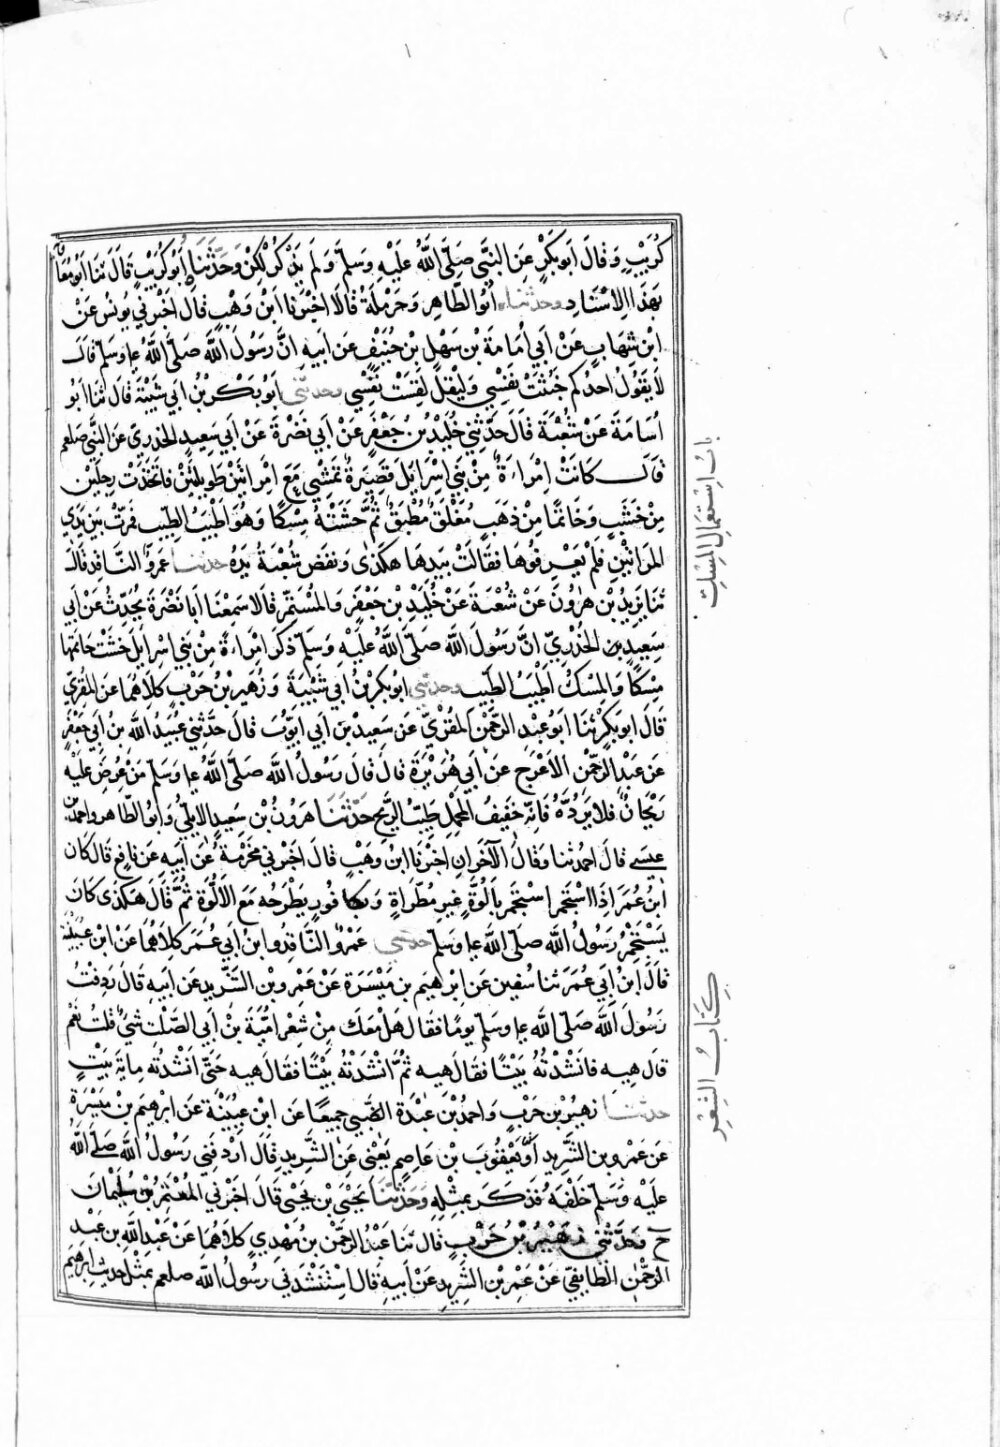 كُرَيْبٍ وَقَالَ أَبُو بَكْرٍ عَنِ النَّبِيِّ صَلَّى اللَّهُ عَلَيْهِ وَسَلَّمَ وَلَمْ يَذْكُرْ لَكِنْ وَحَدَّثَنَا أَبُو كُرَيْبٍ قَالَ ثَنَا أَبُو مُعَا
بِهَذَا الْإِسْنَادِ وحدثنا أَبُو الطَّاهِرِ وَحَرْمَلَةُ قَالَا أَخْبَرَنَا ابْنُ وَهْبٍ قَالَ أَخْبَرَنِي يُونُسُ عَنْ
ابْنِ شِهَابٍ عَنْ أَبِي أُمَامَةَ بْنِ سَهْلِ بْنِ حُنَيْفٍ عَنْ أَبِيهِ أَنَّ رَسُولَ اللَّهِ صَلَّى اللَّهُ ع‍ل‍ي‍ه‍ وَسَلَّمَ قَالَ
لَا يَقُولُ أَحَدُكُمْ خَبُثَتْ نَفْسِي وَلْيَقُلْ لَقِسَتْ نَفْسِي وحدثني أَبُو بَكْرِ بْنُ أَبِي شَيْبَةَ قَالَ ثَنَا أَبُو
أُسَامَةَ عَنْ شُعْبَةَ قَالَ حَدَّثَنِي خُلَيْدُ بْنُ جَعْفَرٍ عَنْ أَبِي نَضْرَةَ عَنْ أَبِي سَعِيدٍ الْخُدْرِيِّ عَنِ النَّبِيِّ صلعم
قَالَ كَانَتْ امْرَاءَةٌ مِنْ بَنِي إِسْرَائِلَ قَصِيرَةٌ تَمْشِي مَعَ امْرَأَتَيْنِ طَوِيلَتَيْنِ فَاتَّخَذَتْ رِجْلَيْنِ
مِنْ خَشَبٍ وَخَاتَمًا مِنْ ذَهَبٍ مُغْلَقٍ مُطْبَقٍ ثُمَّ حَشَتْهُ مِسْكًا وَهُوَ أَطْيَبُ الطِّيبِ فَمَرَّتْ بَيْنَ يَدَيِ
الْمَرْأَتَيْنِ فَلَمْ يَعْرِفُوهَا فَقَالَتْ بِيَدِهَا هَكَذَى وَنَفَضَ شُعْبَةُ يَدَهُ حدثنا عَمْرٌو النَّاقِدُ قَالَ
ثَنَا يَزِيدُ بْنُ هَرُونَ عَنْ شُعْبَةَ عَنْ خُلَيْدِ بْنِ جَعْفَرٍ وَالْمُسْتَمِرِّ قَالَا سَمِعْنَا أَبَا نَضْرَةَ يُحَدِّثُ عَنْ أَبِي
سَعِيدٍ الْخُدْرِيِّ أَنَّ رَسُولَ اللَّهِ صَلَّى اللَّهُ عَلَيْهِ وَسَلَّمَ ذَكَرَ امْرَاءَةً مِنْ بَنِي إِسْرَايِلَ حَشَتْ خَاتَمَهَا
مِسْكًا وَالْمِسْكُ أَطْيَبُ الطِّيبِ وحدثني أَبُو بَكْرِ بْنُ أَبِي شَيْبَةَ وَزُهَيْرُ بْنُ حَرْبٍ كِلَاهُمَا عَنِ الْمُقْرِي
قَالَ أَبُو بَكْرٍ ثَنَا أَبُو عَبْدِ الرَّحْمَنِ الْمُقْرِيُّ عَنْ سَعِيدِ بْنِ أَبِي أَيُّوبَ قَالَ حَدَّثَنِي عُبَيْدُ اللَّهِ بْنُ أَبِي جَعْفَرٍ
عَنْ عَبْدِ الرَّحْمَنِ الْأَعْرَجِ عَنْ أَبِي هُرَيْرَةَ قَالَ قَالَ رَسُولُ اللَّهِ صَلَّى اللَّهُ عليه وَسَلَّمَ مَنْ عُرِضَ عَلَيْهِ
رَيْحَانٌ فَلَا يَرُدَّهُ فَإِنَّهُ خَفِيفُ الْمَحْمِلِ طَيِّبُ الرِّيحِ حَدَّثَنَا هَرُونُ بْنُ سَعِيدٍ الْأَيْلِيُّ وَأَبُو الطَّاهِرِ وَأَحْمَدُ بْنُ
عِيسَى قَالَ أَحْمَدُ ثَنَا وَقَالَ الْآخَرَانِ أَخْبَرَنَا ابْنُ وَهْبٍ قَالَ أَخْبَرَنِي مَخْرَمَةُ عَنْ أَبِيهِ عَنْ نَافِعٍ قَالَ كَانَ
ابْنُ عُمَرَ إِذَا اسْتَجْمَرَ اسْتَجْمَرَ بِأَلُوَّةٍ غَيْرِ مُطَرَّاةٍ وَبِكَافُورٍ يَطْرَحُهُ مَعَ الْأَلُوَّةِ ثُمَّ قَالَ هَكَذَى كَانَ
يَسْتَجْمِرُ رَسُولُ اللَّهِ صَلَّى اللَّهُ عليه وَسَلَّمَ حدثني عَمْرٌو النَّاقِدُ وَابْنُ أَبِي عُمَرَ كِلَاهُمَا عَنْ ابْنِ عُيَيْنَةَ
قَالَ ابْنُ أَبِي عُمَرَ ثَنَا سُفْيَنُ عَنْ إِبْرَهِيمَ بْنِ مَيْسَرَةَ عَنْ عَمْرِو بْنِ الشَّرِيدِ عَنْ أَبِيهِ قَالَ رَدِفْتُ
رَسُولَ اللَّهِ صَلَّى اللَّهُ عليه وَسَلَّمَ يَوْمًا فَقَالَ هَلْ مَعَكَ مِنْ شِعْرِ أُمَيَّةَ بْنِ أَبِي الصَّلْتِ شَيْءٌ قُلْتُ نَعَمْ
قَالَ هِيهِ فَأَنْشَدْتُهُ بَيْتًا فَقَالَ هِيهِ ثُمَّ أَنْشَدْتُهُ بَيْتًا فَقَالَ هِيهِ حَتَّى أَنْشَدْتُهُ مِايَةَ بَيْتٍ
حدثنا زُهَيْرُ بْنُ حَرْبٍ وَأَحْمَدُ بْنُ عَبْدَةَ الضَّبِّيُّ جَمِيعًا عَنْ ابْنِ عُيَيْنَةَ عَنْ إِبْرَهِيمَ بْنِ مَيْسَرَةَ
عَنْ عَمْرِو بْنِ الشَّرِيدِ أَوْ يَعْقُوبَ بْنِ عَاصِمٍ يَعْنِي عَنِ الشَّرِيدِ قَالَ أَرْدَفَنِي رَسُولُ اللَّهِ صَلَّى اللَّهُ
عَلَيْهِ وَسَلَّمَ خَلْفَهُ فَذَكَرَ بِمِثْلِهِ وَحَدَّثَنَا يَحْيَى بْنُ يَحْيَى قَالَ أَخْبَرَنِي الْمُعْتَمِرُ بْنُ سُلَيْمَانَ
ح وَحَدَّثَنِي زُهَيْرُ بْنُ حَرْبٍ قَالَ ثَنَا عَبْدُ الرَّحْمَنِ بْنُ مَهْدِيٍّ كِلَاهُمَا عَنْ عَبْدِ اللَّهِ بْنِ عَبْدِ
الرَّحْمَنِ الطَّائِفِيِّ عَنْ عَمْرِو بْنِ الشَّرِيدِ عَنْ أَبِيهِ قَالَ اسْتَنْشَدَنِي رَسُولُ اللَّهِ صلعم بِمِثْلِ حَدِيثِ إِبْرَهِيمَ
بَابُ اسْتِعْمَالِ الْمِسْكِ
كِتَابُ الشِّعْرِ